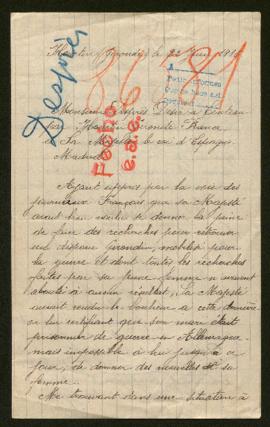 Hourtin, Gironde, le 22 Juin 191
Despiès
Fecho
Monsieur
par Hourtin Gironde France
Sa Majesté le roi d'Espagne
Madrid
Ayant appris par la voie des
journaux Français que sa Majesté
avait bien voulu se donner la peine
de faire des recherches pour retrouver
un disparu girondin, mobilisé pour
la guerre et dont toutes les recherches
faites par sa jeune femme n'avaient
abouti à aucun résultat, Sa Majesté
aurait rendu le bonheur à cette dernière
en lui certifiant que son mari était
prisonnier de guerre en Allemagne
mais impossible à lui jusqu'à ce
jour, de donner des nouvelles à sa
femme.
Me trouvant dans une situation à